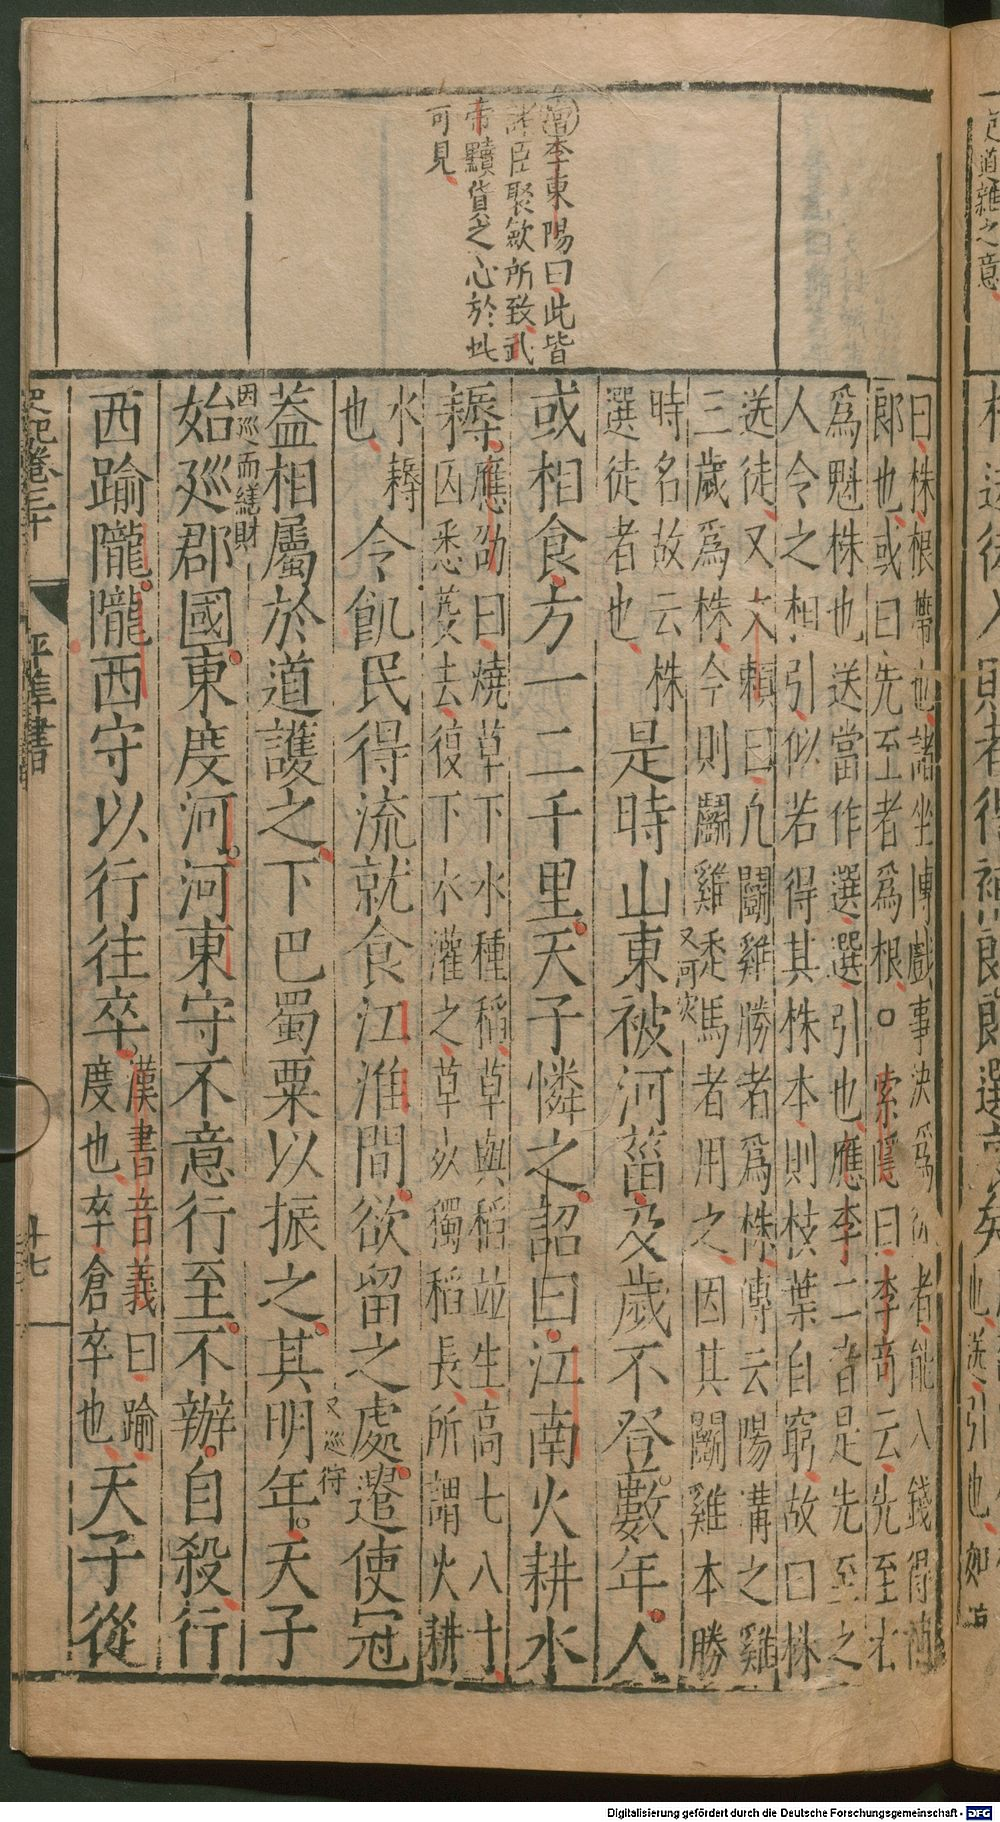 增李東陽曰此皆
諸臣聚斂所致武
帝黷貨之心於此
可見
曰株根帶也諸坐博戲事決爲徒者能入錢得補
郞也或曰先至者爲根○索隱曰李奇云先至者
爲魁株也送當作選選引也應李二音是先至之
人令之相引似若得其株本則枝葉自窮故曰株
送徒又文穎曰凡鬭雞勝者爲株傳云陽溝之雞
三歲爲株今則鬭雞走馬者用之因其鬭雞本勝
時名故云株
選徒者也
又河灾
是時山東被河菑及歲不登數年人
或相食方一二千里天子憐之詔曰江南火耕水
耨應劭曰燒草下水種稻草與稻並生高七八寸
因悉芟去復下水灌之草死獨稻長所謂火耕
水耨
也
令飢民得流就食江淮間欲留之處遣使冠
蓋相屬於道護之下巴蜀粟以振之其明年天子
又巡狩
因巡而繞財
始巡郡國東度河河東守不意行至不辦自殺行
西踰隴隴西守以行往卒漢書音義曰踰
度也卒倉卒也天子從
史記卷三十
平準書
十七
Digitalisierung gefördert durch die Deutsche Forschungsgemeinschaft - DFG